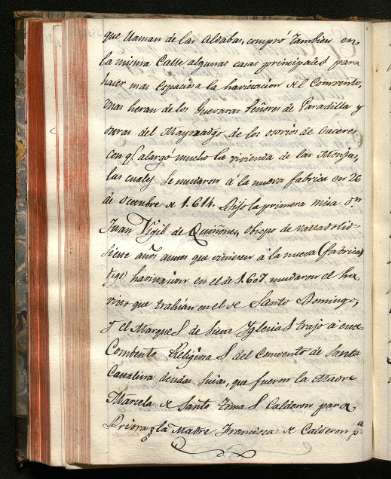 que llaman de las Aldabas, compró tambien en
la misma Calle algunas casas principales para
hacer mas espaciosa la havitacion del Combento,
unas heran de los Guevaras Señores de Paradilla y
otras del Mayorazgo de los Osorios de Caceres
con q. alargo mucho la vivienda de las Monjas,
las cuales se mudaron á la nueva fabrica en 26
de Octubre de 1.614. Dijo la primera misa Dn
Juan Vigil de Quiñones, Obispo de Valladolid
siete años antes que viniesen á la nueva fabrica
en el de 1607 mudaron el
que trahian en el de Santo Domingo,
y el Marques de Siete Yglesias trajo á este
Combento Religiosas del Convento de Santa
Catalina deudas suias, que fueron la Madre
Marcela de Santo Tomas Calderon para
Priora, y la Madre Francisca de Calderon pa